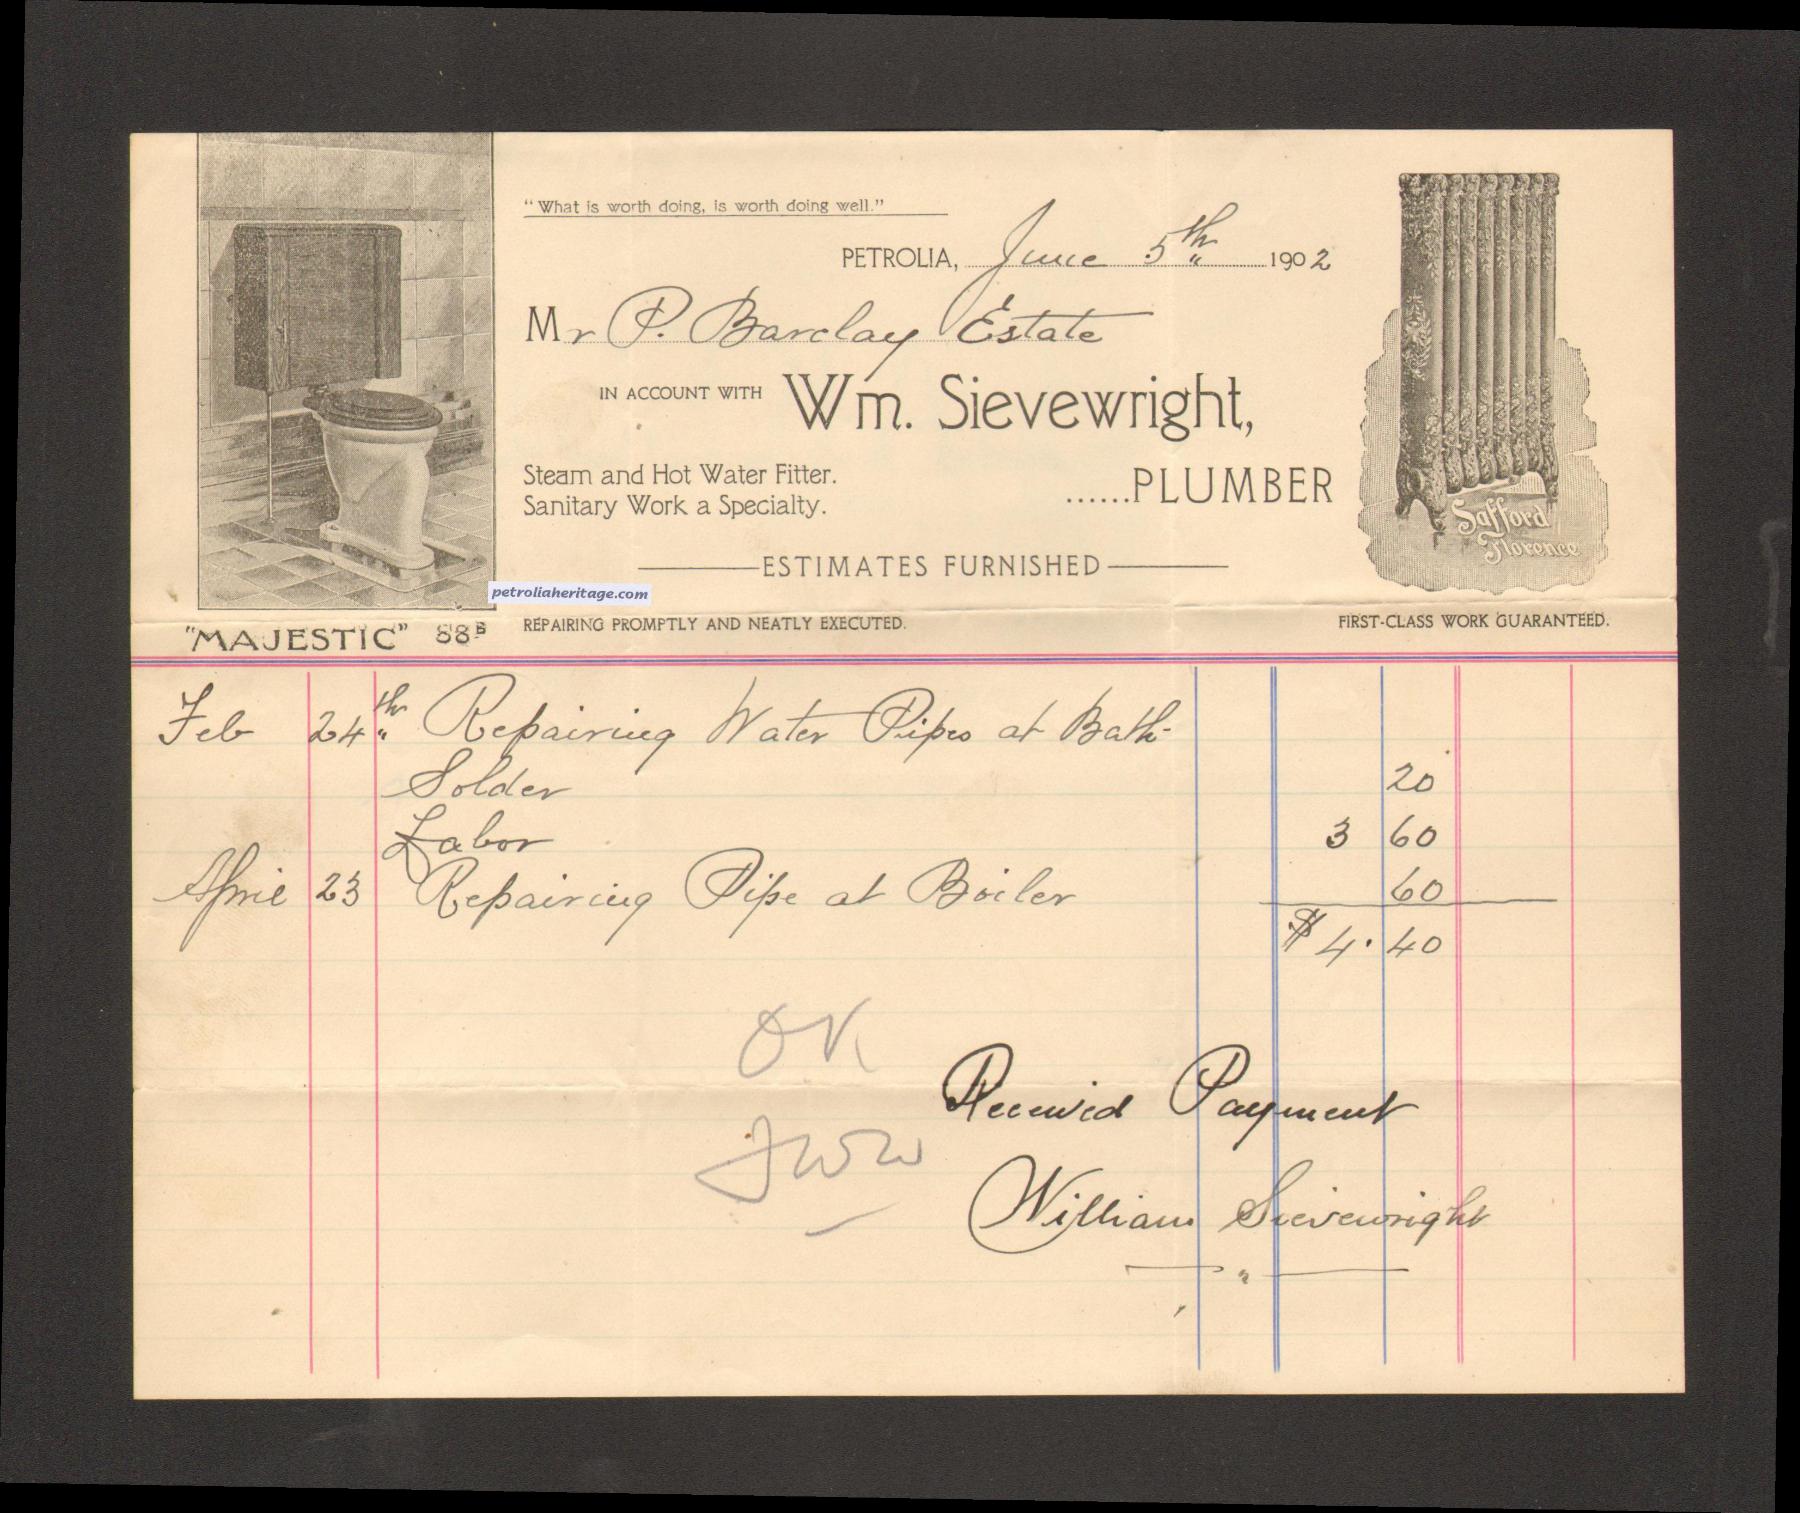 "What is worth doing, is worth doing well."
PETROLIA, June 5th 1902
Mr P. Barclay Estate
IN ACCOUNT WITH Wm. Sievewright,
Steam and Hot Water Fitter.
Sanitary Work a Specialty.
......PLUMBER
Safford
Florence
ESTIMATES FURNISHED
petroliaheritage.com
"MAJESTIC" 88B
REPAIRING PROMPTLY AND NEATLY EXECUTED.
FIRST-CLASS WORK GUARANTEED.
Feb 24th Repairing Water Pipes at Bath
Solder 20
Labor 3 60
April 23 Repairing Pipe at Boiler 60
$ 4.40
OK
Received Payment
William Sievewright